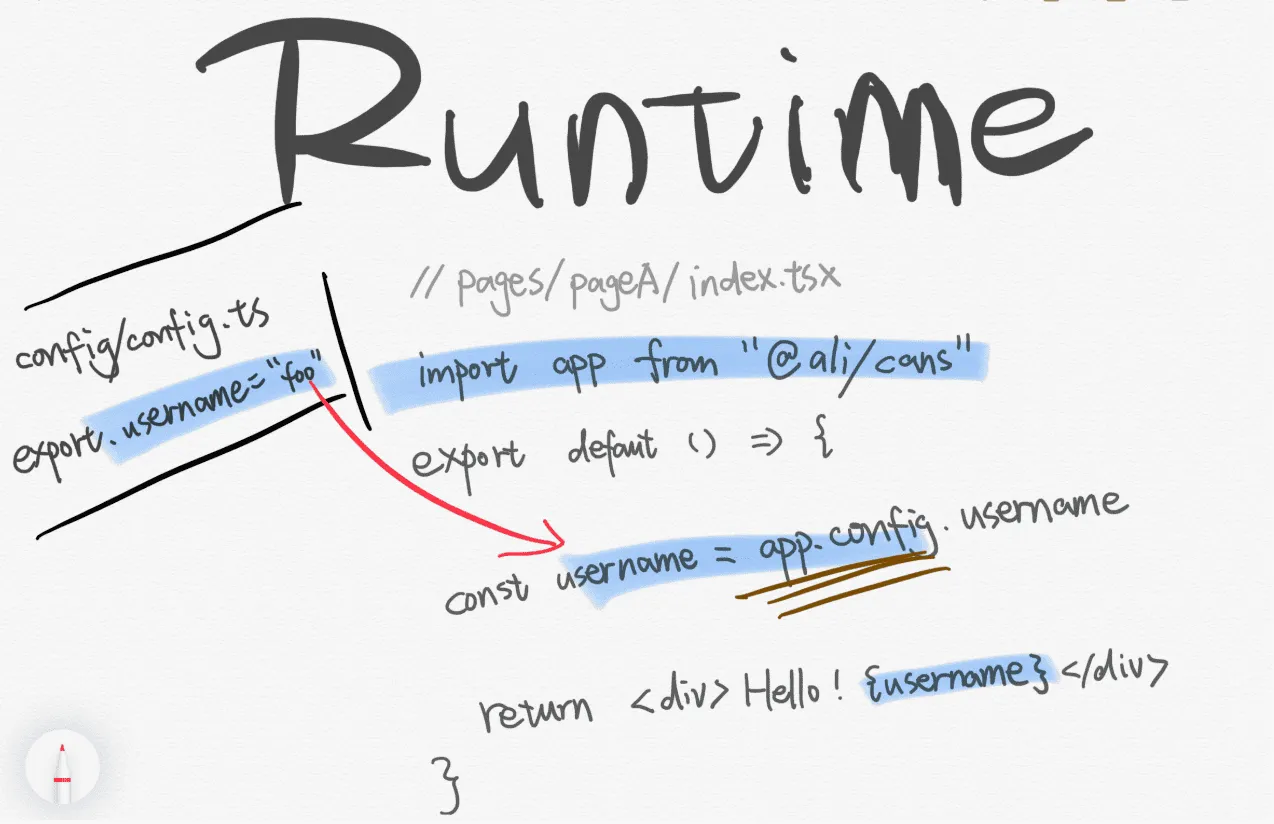 Runtime
config/config.ts
export.username="foo"
// pages/pageA/index.tsx
import app from "@ali/cans"
export defaut () => {
const username = app.config.username
return <div>Hello! {username}</div>
}